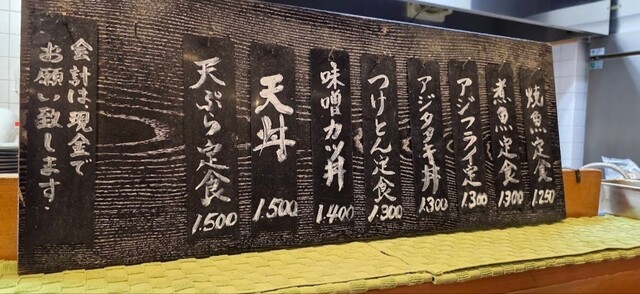 焼魚定食
1.250
煮魚定食
1300
アジフライ定
1.300
アジタタキ丼
1.300
つけとん定食
1.300
味噌カツ丼
1.400
天丼
1.500
天ぷら定食
1.500
会計は現金で
お願い致します.